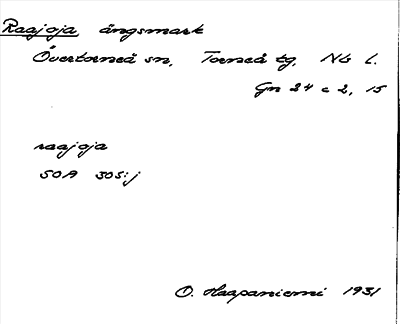 Raajoja ängsmark
Övertorneå sn, Torneå tg, Nb l.
Gn 24 c 2, 15
raajoja
SOA 305:j
O. Haapaniemi 1931